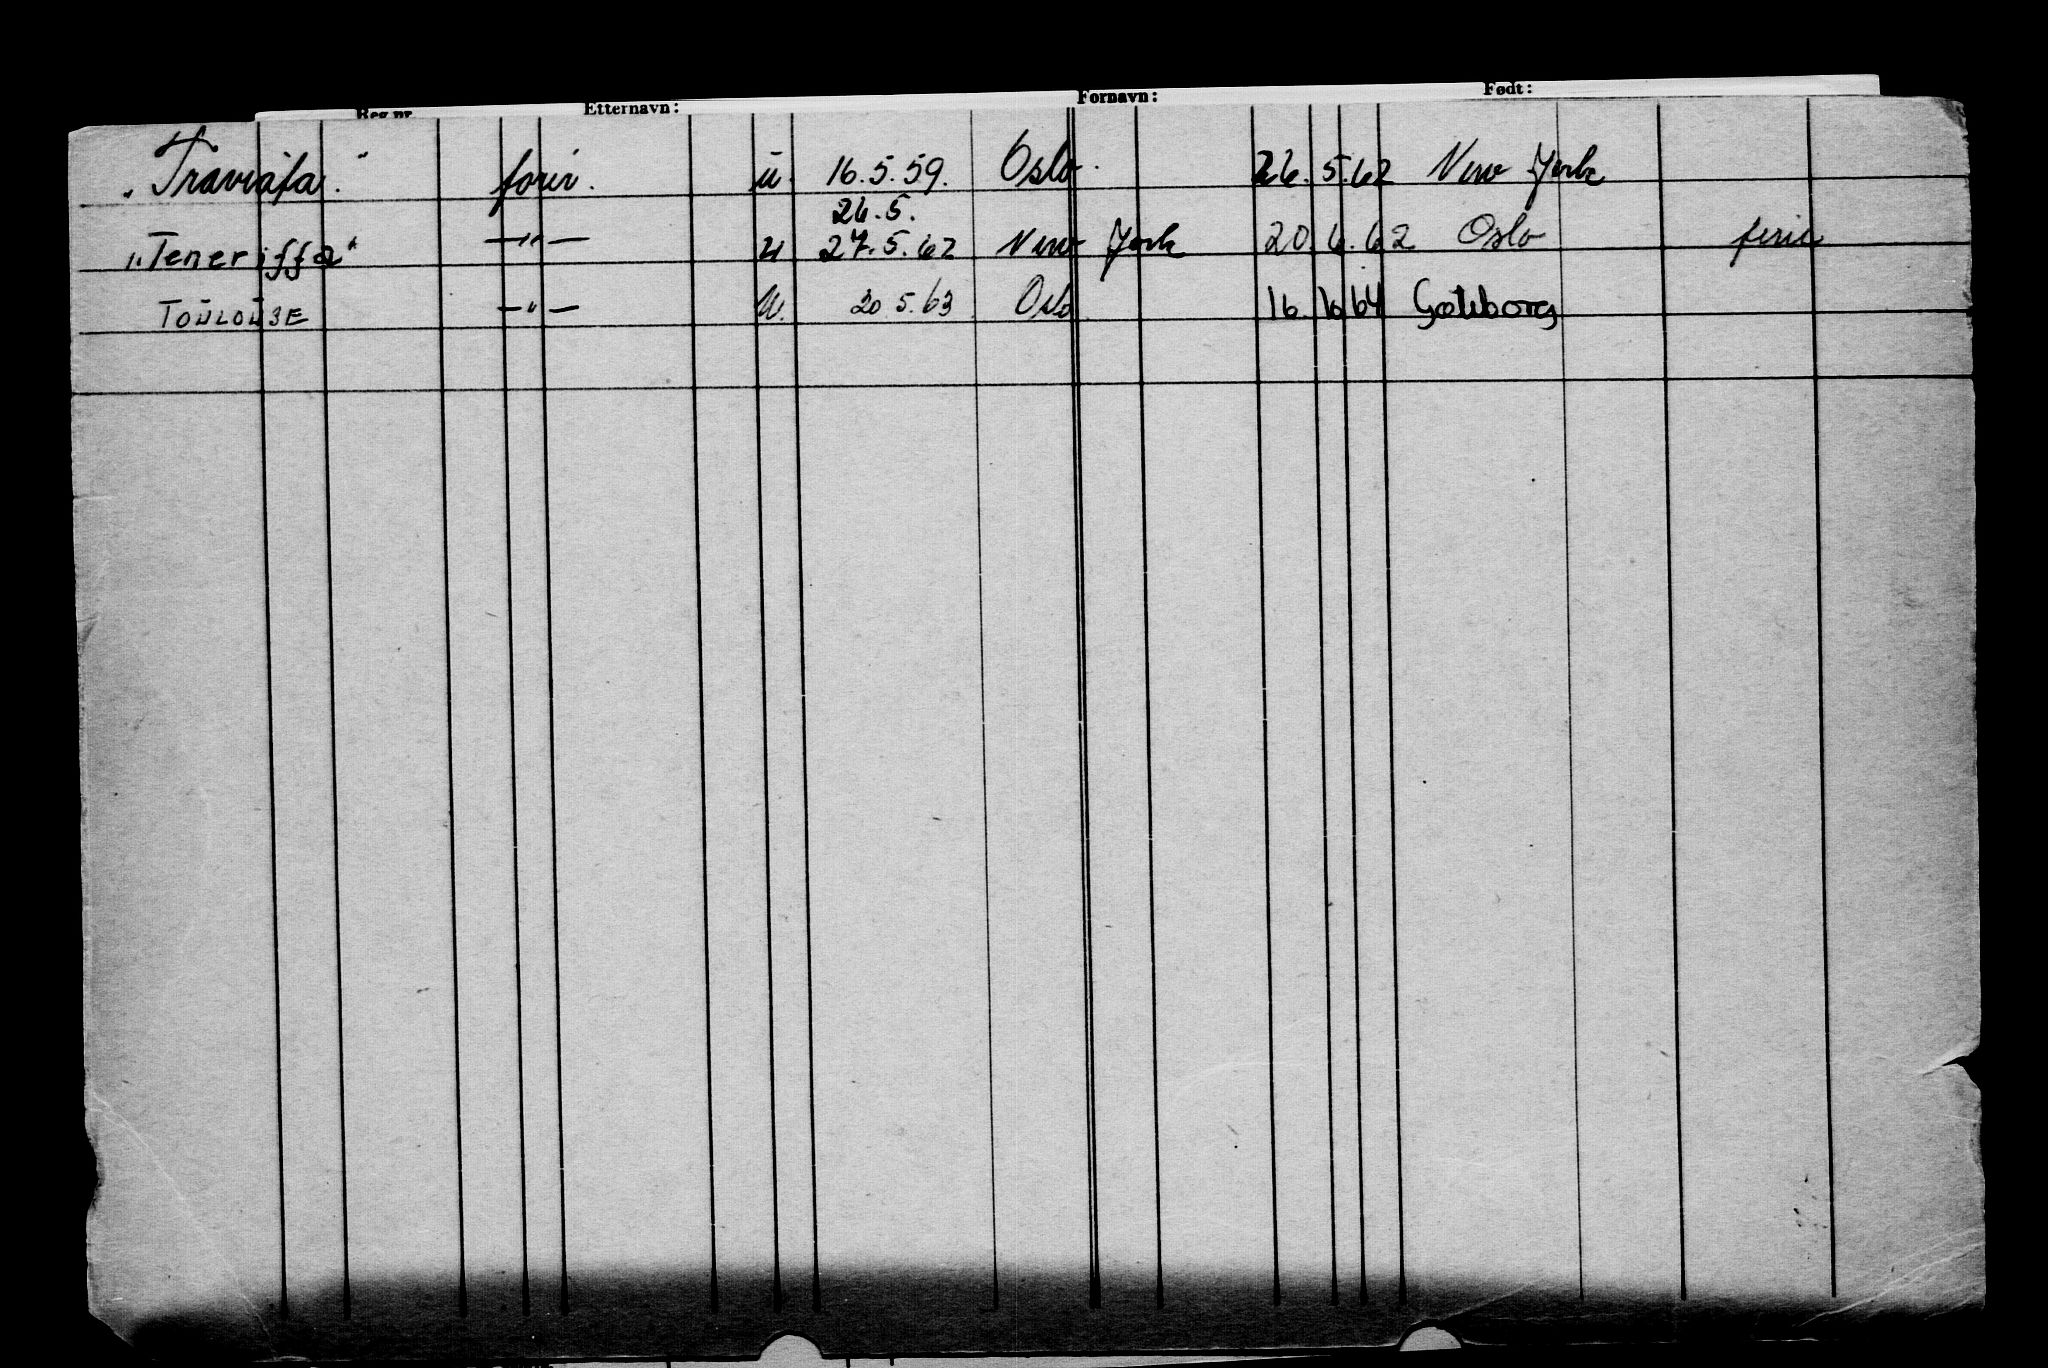 Reg.nr. Etternavn: Fornavn: Født:
"Traviata." ü. 16.5.59. Oslo. 26.5.62 New York
26.5.
"Teneriffa" —"— u 27.5.62 New York 20.6.62 Oslo ferie
TOULOUSE —"— u. 20.5.63 Oslo 16.10.64 Gøteborg